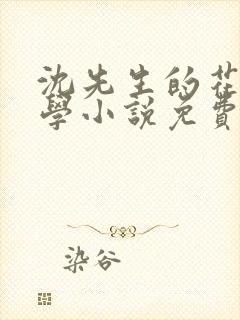 沈先生的花
學小說免費
染谷